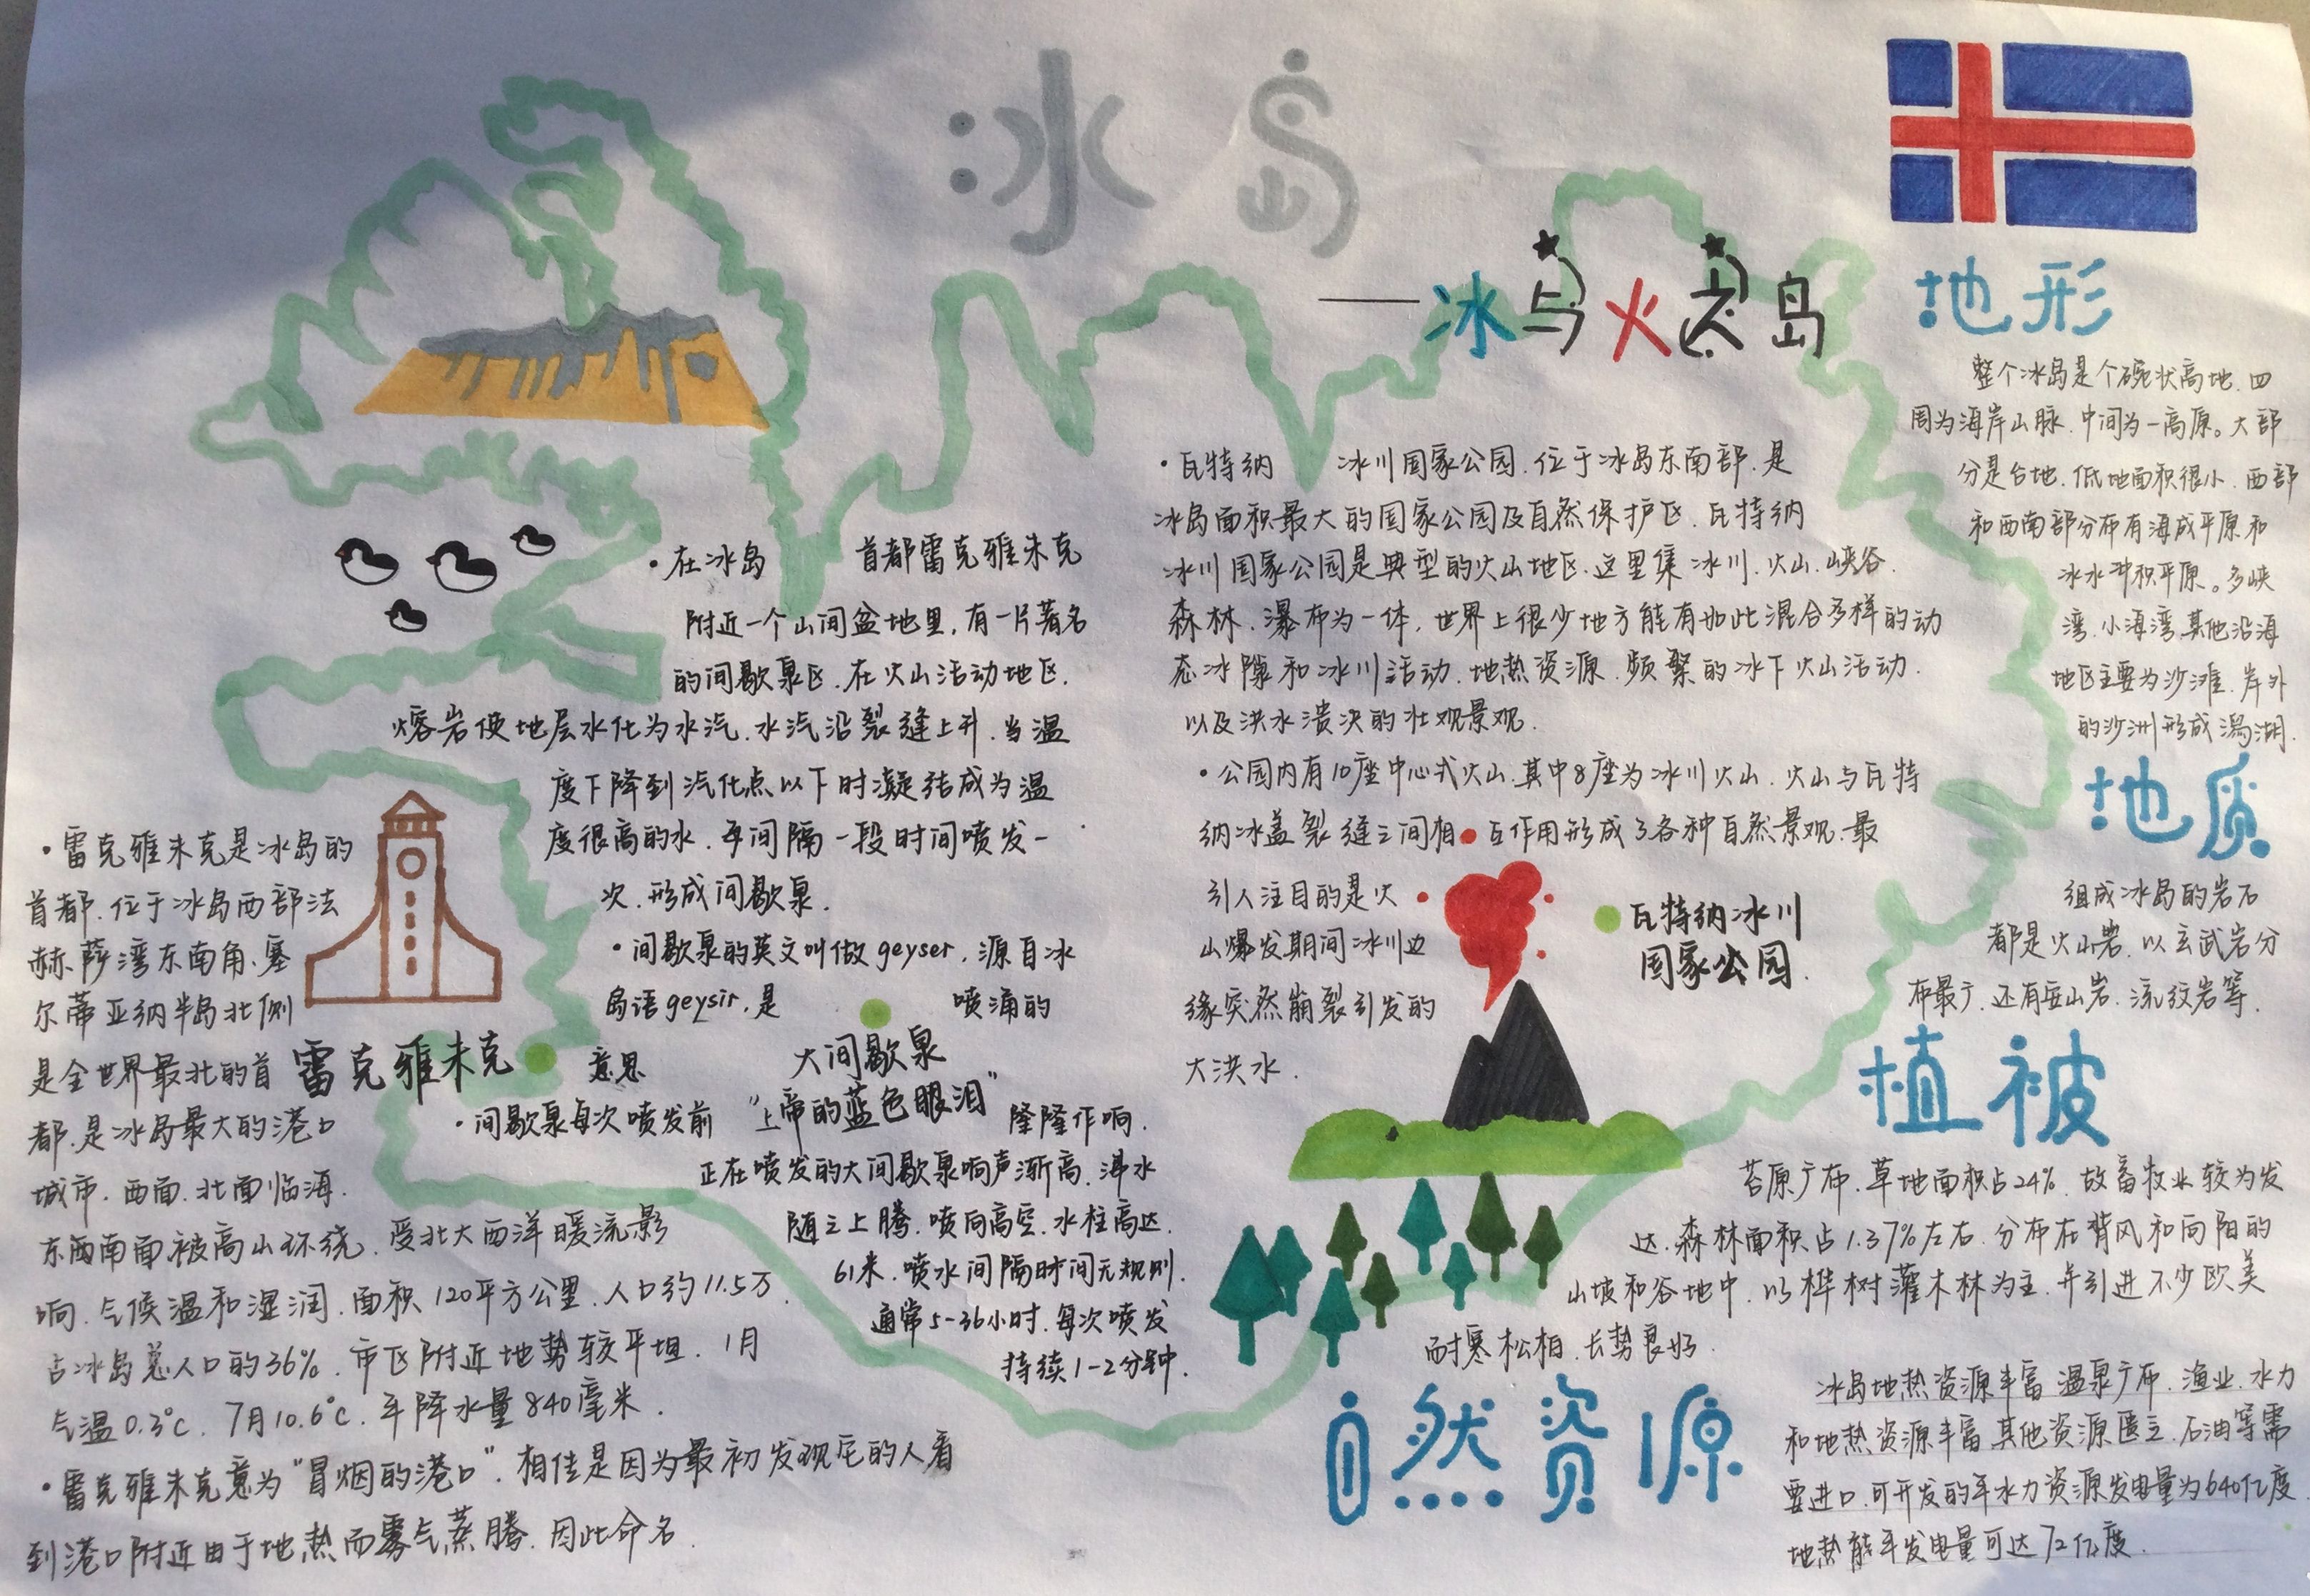 冰岛
——冰与火之岛
·在冰岛 首都雷克雅未克
附近一个山间盆地里,有一片著名
的间歇泉区.在火山活动地区.
熔岩使地层水化为水汽.水汽沿裂缝上升.当温
度下降到汽化点以下时凝结成为温
度很高的水.每间隔一段时间喷发一
次.形成间歇泉.
·间歇泉的英文叫做geyser,源自冰
岛语geysir,是 喷涌的
意思
大间歇泉
"上帝的蓝色眼泪"
·间歇泉每次喷发前 隆隆作响.
正在喷发的大间歇泉响声渐高.沸水
随之上腾.喷向高空.水柱高达
61米.喷水间隔时间无规则.
通常5-36小时.每次喷发
持续1-2分钟.
·雷克雅未克是冰岛的
首都.位于冰岛西部法
赫萨湾东南角.塞
尔蒂亚纳半岛北侧
是全世界最北的首
都.是冰岛最大的港口
城市.西面.北面临海.
东西南面被高山环绕.受北大西洋暖流影
响.气候温和湿润.面积120平方公里.人口约11.5万
占冰岛总人口的36%.市区附近地势较平坦.1月
气温0.3℃.7月10.6℃.年降水量840毫米.
·雷克雅未克意为"冒烟的港口".相传是因为最初发现它的人看
到港口附近由于地热而雾气蒸腾.因此命名.
雷克雅未克
·瓦特纳 冰川国家公园.位于冰岛东南部.是
冰岛面积最大的国家公园及自然保护区.瓦特纳
冰川国家公园是典型的火山地区.这里集冰川.火山.峡谷.
森林.瀑布为一体,世界上很少地方能有如此混合多样的动
态冰隙和冰川活动.地热资源.频繁的冰下火山活动.
以及洪水溃决的壮观景观.
·公园内有10座中心式火山.其中8座为冰川火山.火山与瓦特
纳冰盖裂缝之间相互作用形成了各种自然景观.最
引人注目的是火
山爆发期间冰川边
缘突然崩裂引发的
大洪水.
瓦特纳冰川
国家公园.
地形
整个冰岛是个碗状高地.四
周为海岸山脉.中间为一高原。大部
分是台地.低地面积很小.西部
和西南部分布有海成平原和
冰水冲积平原。多峡
湾.小海湾.其他沿海
地区主要为沙滩.岸外
的沙洲形成潟湖.
地质
组成冰岛的岩石
都是火山岩.以玄武岩分
布最广.还有安山岩.流纹岩等.
植被
苔原广布.草地面积占24%.故畜牧业较为发
达.森林面积占1.37%左右.分布在背风和向阳的
山坡和谷地中.以桦树灌木林为主.并引进不少欧美
耐寒松柏.长势良好.
自然资源
冰岛地热资源丰富.温泉广布.渔业.水力
和地热资源丰富.其他资源匮乏.石油等需
要进口.可开发的年水力资源发电量为640亿度
地热能年发电量可达72亿度.